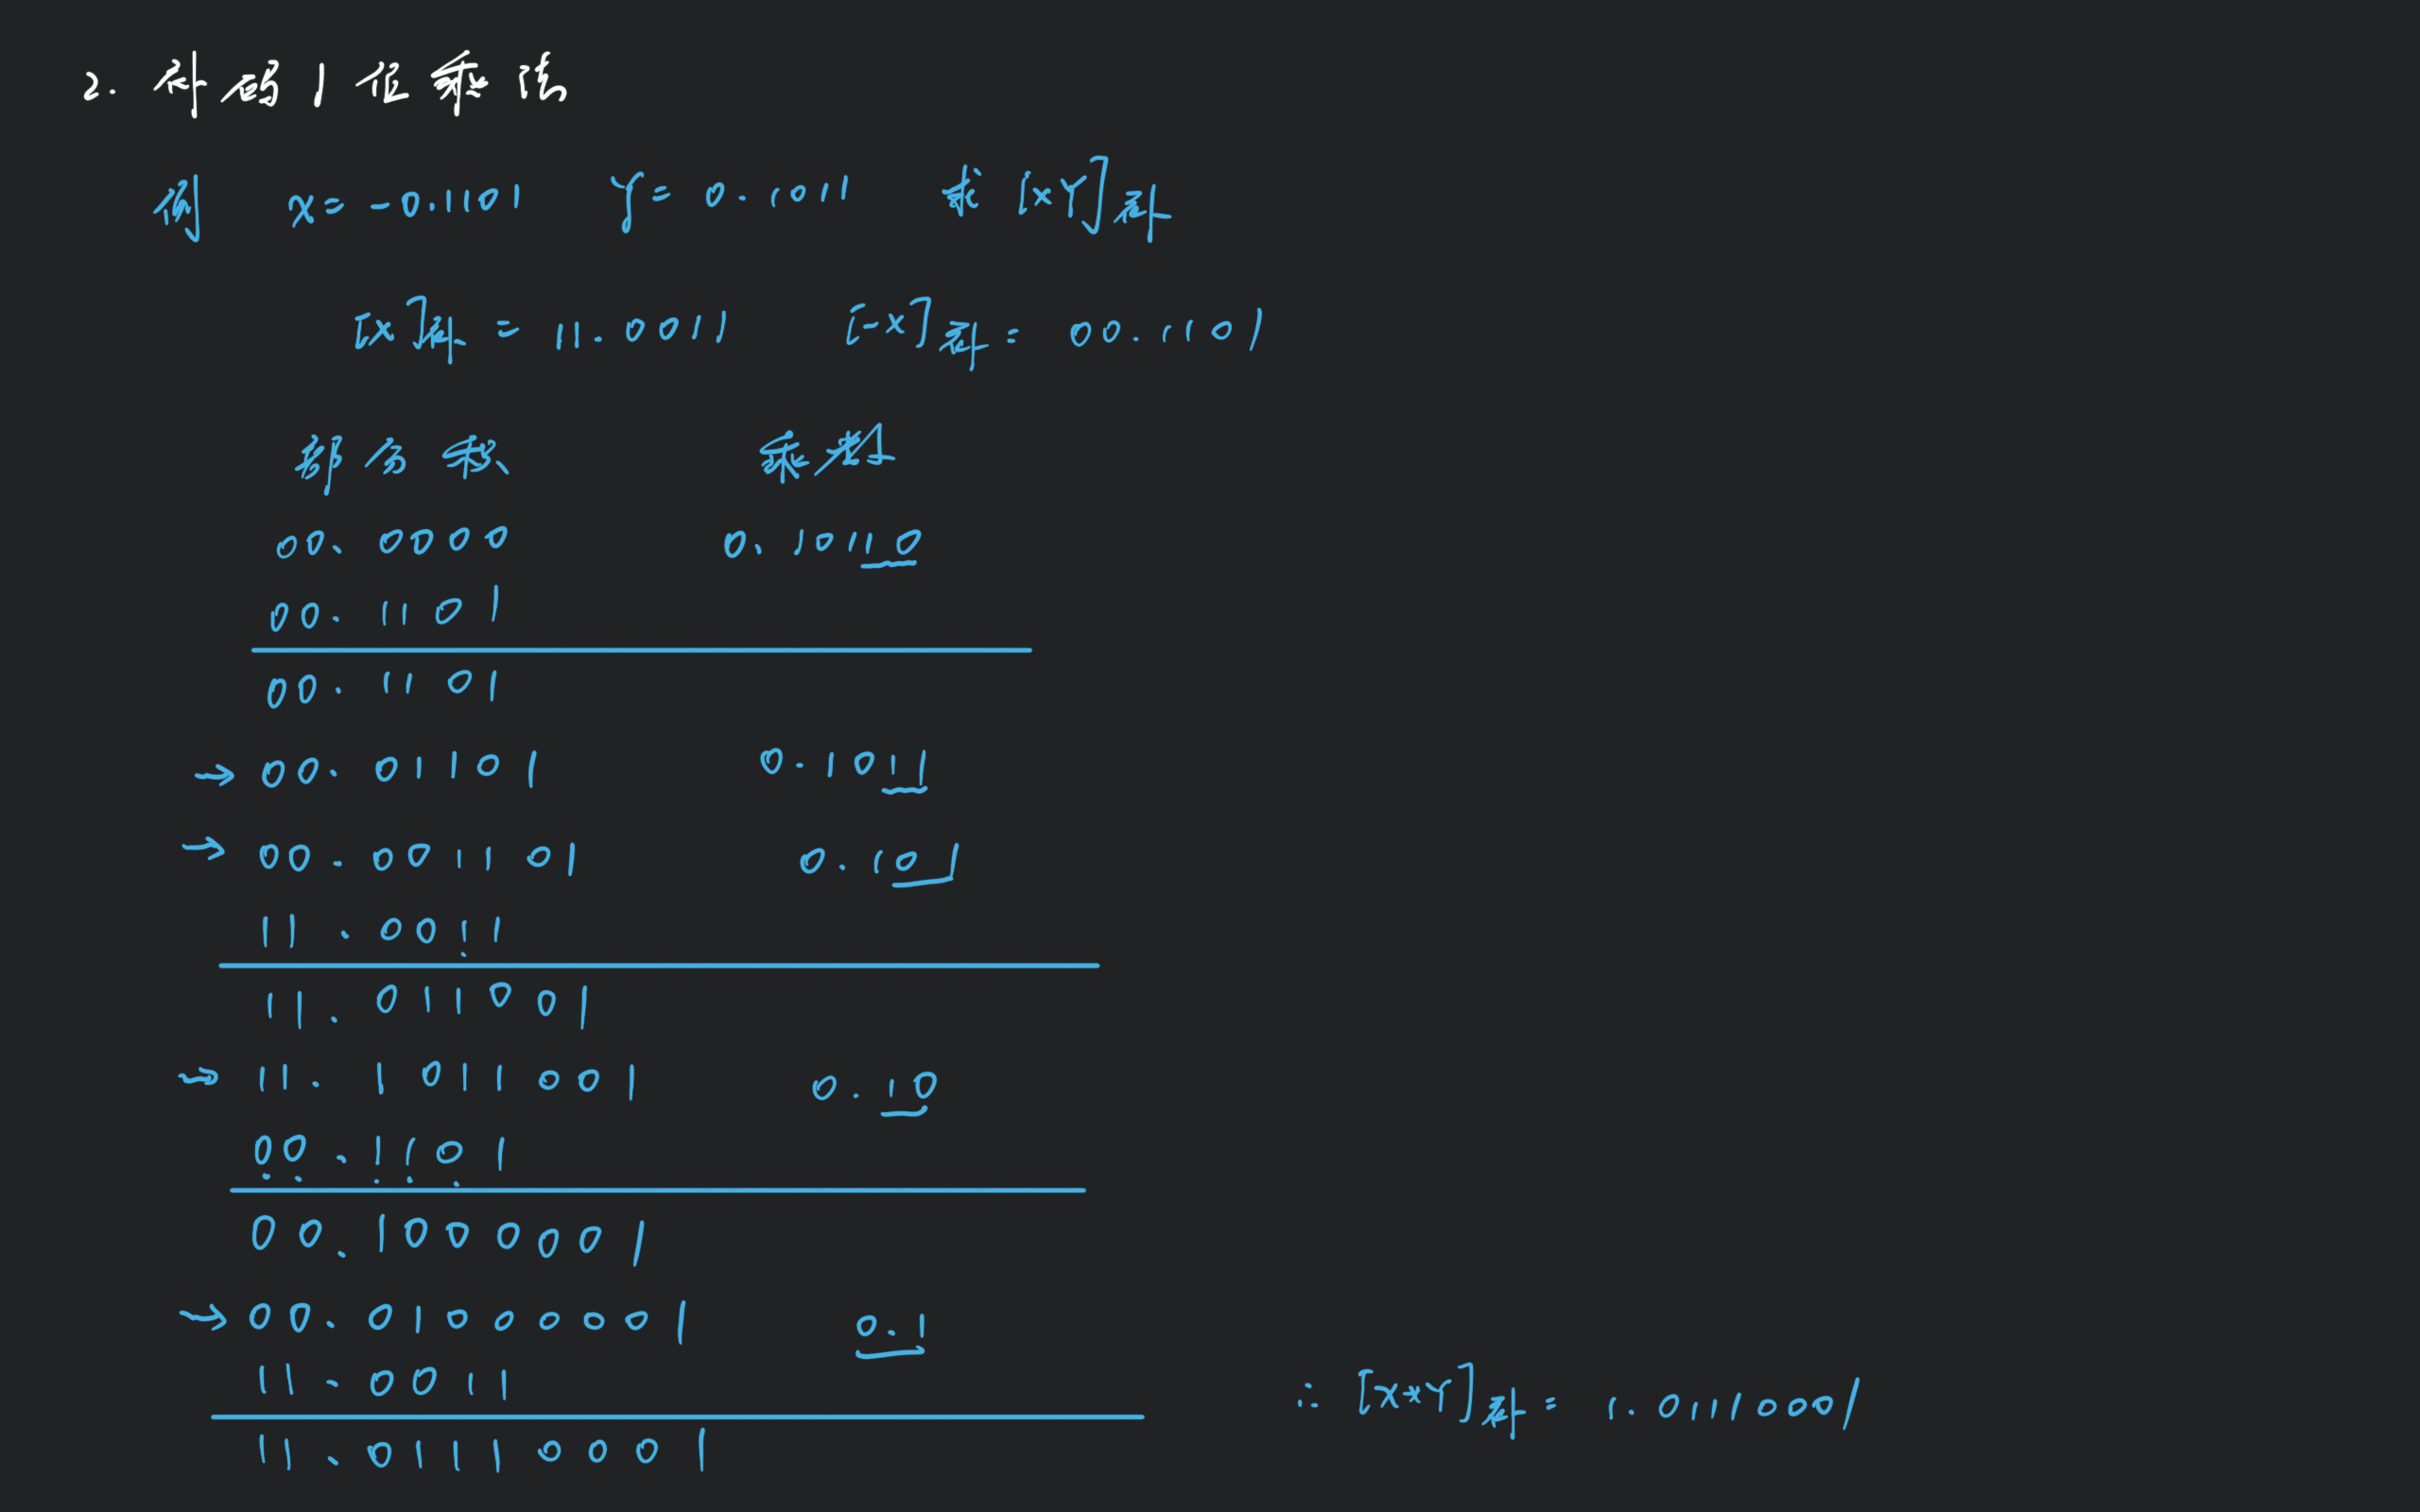 2. 补码1位乘法
例 X=-0.1101 Y=0.1011 求[XY]补
[X]补=11.0011 [-X]补=00.1101
部分积 乘数
00.0000 0.10110
00.1101
00.1101
→00.01101 0.1011
→00.001101 0.101
11.0011
11.011001
→11.1011001 0.10
00.1101
00.1000001
→00.01000001 0.1
11.0011
11.01110001
∴[X*Y]补=1.01110001